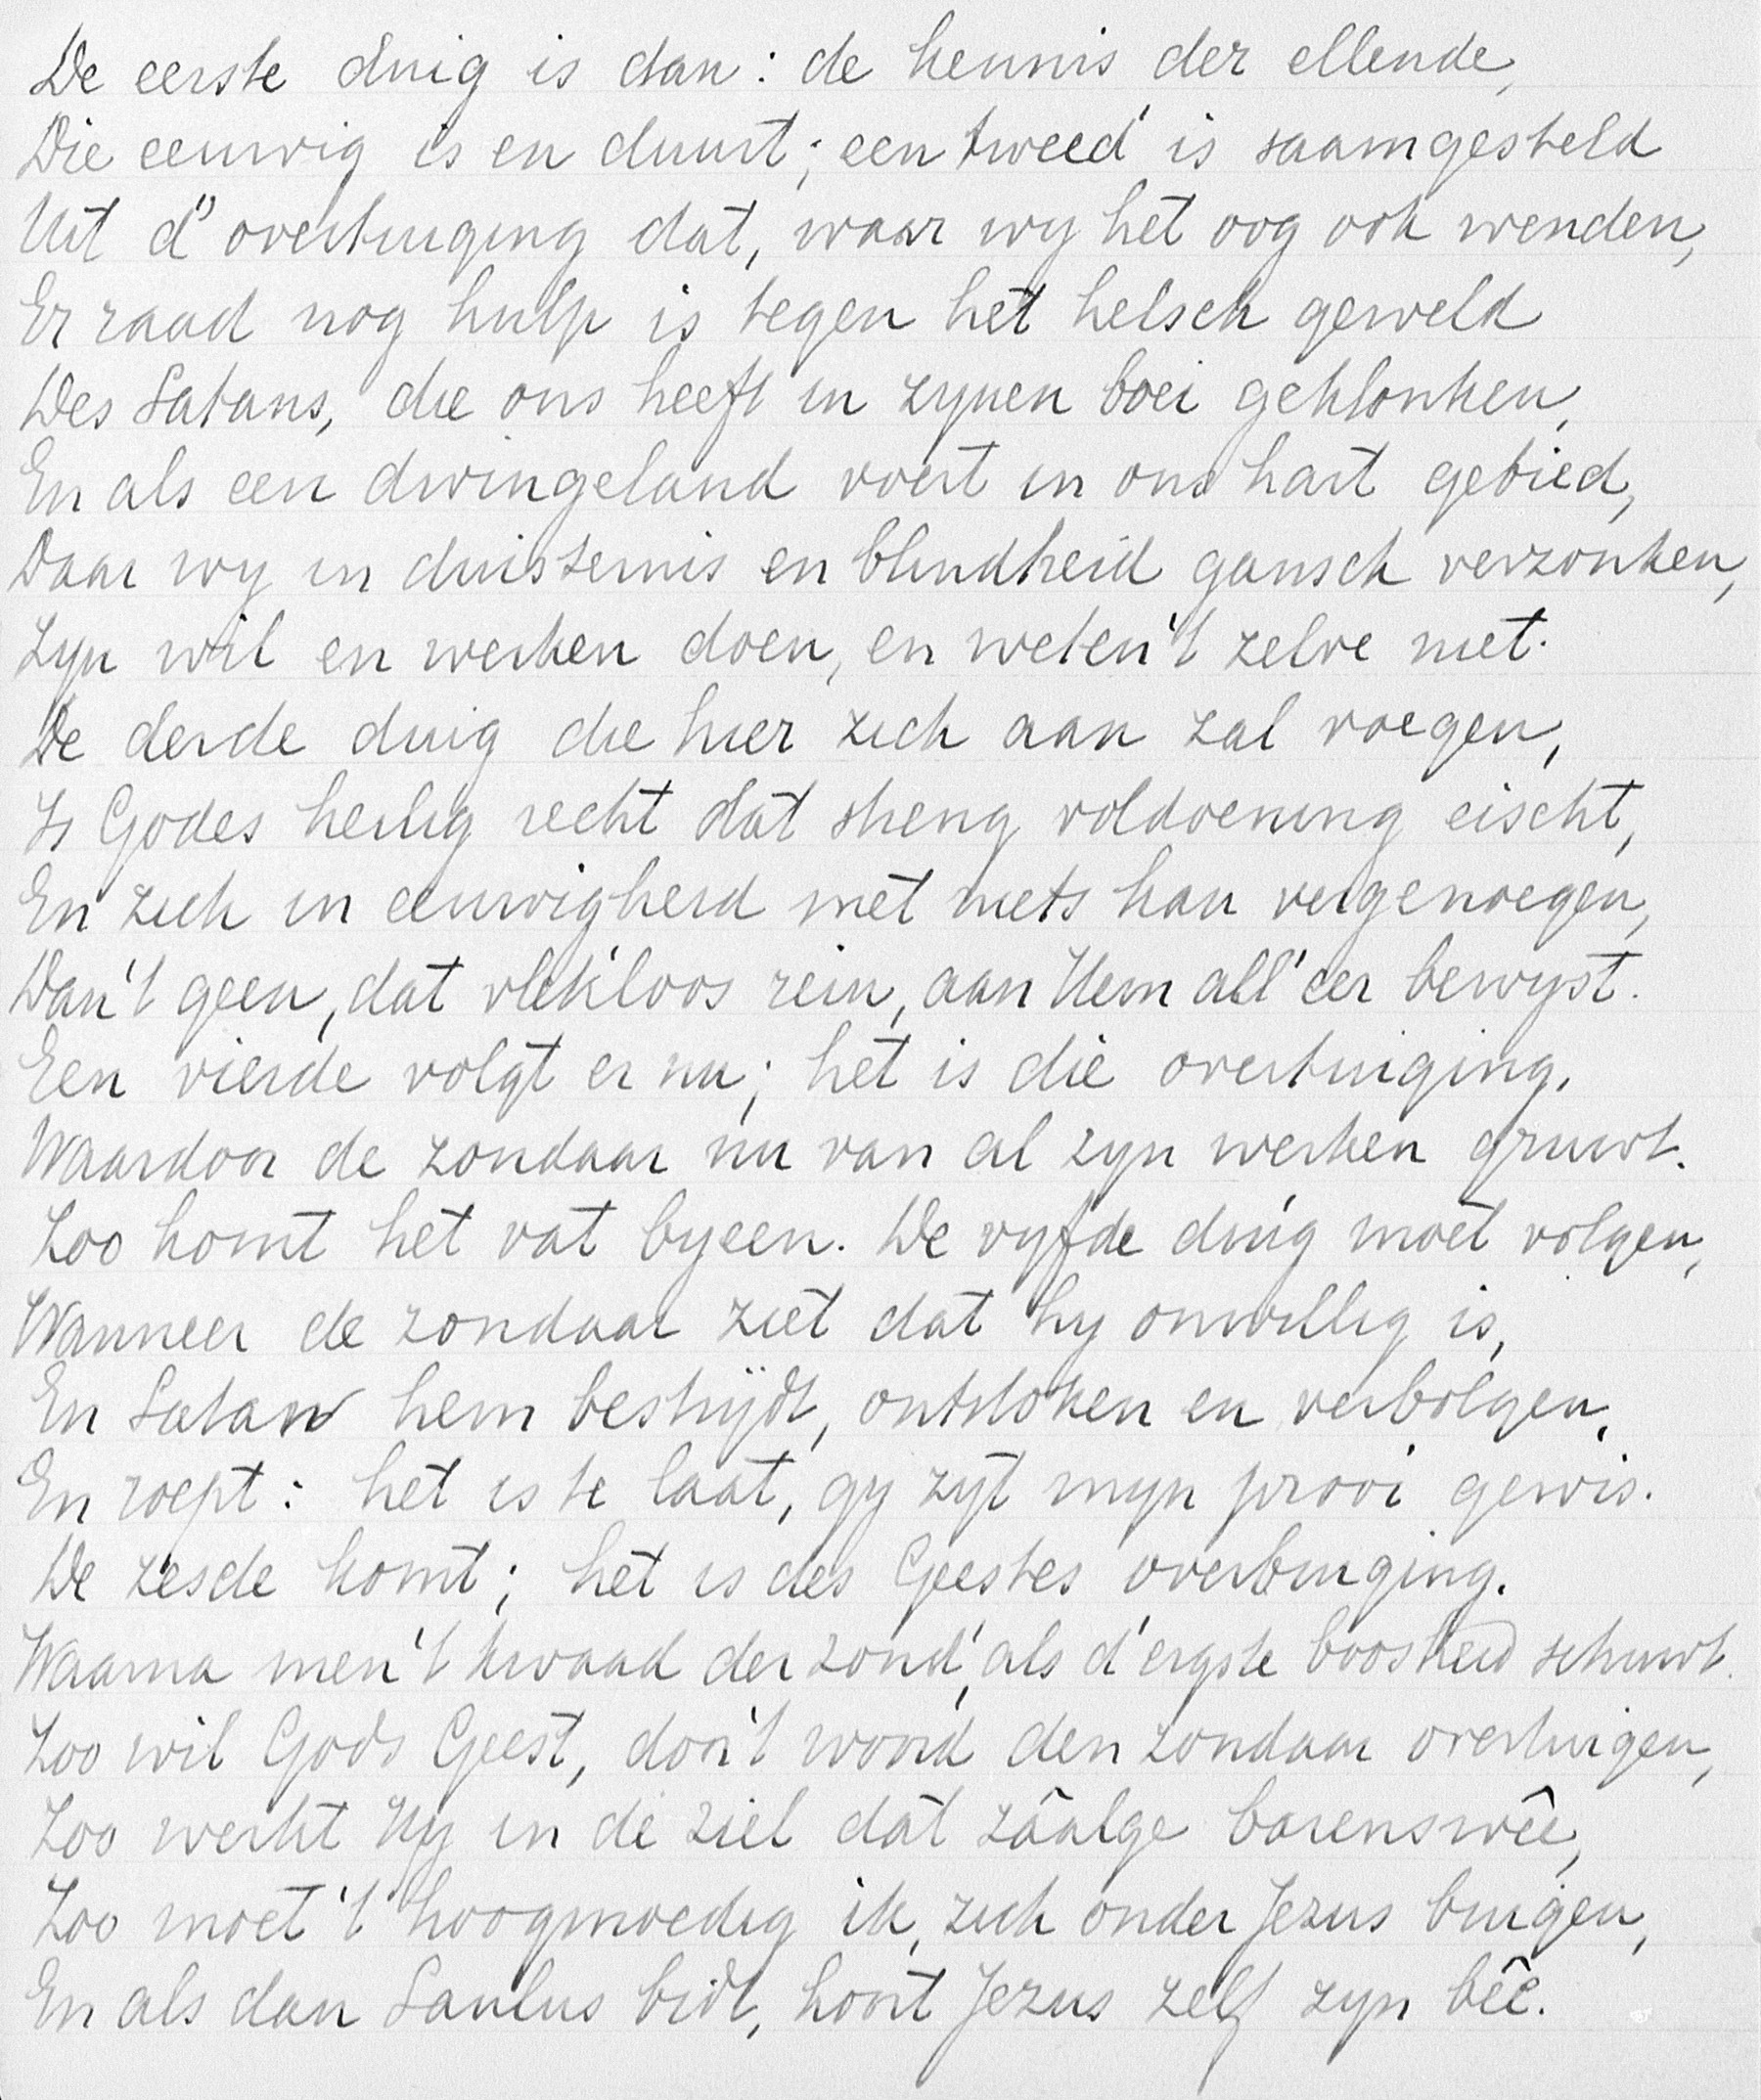 De eerste duig is dan: de kennis der ellende,
Die eeuwig is en duurt; een tweed' is saamgesteld
Uit d' overtuiging dat, waar wy het oog ook wenden,
Er raad nog hulp is tegen het helsch geweld
Des Satans, die ons heeft in zynen boei geklonken,
En als een dwingeland voert in ons hart gebied,
Daar wy in duisternis en blindheid gansch verzonken,
Zyn wil en werken doen, en weten 't zelve niet.
De derde duig die hier zich aan zal voegen,
Is Godes heilig recht dat streng voldoening eischt,
En zich in eeuwigheid met niets kan vergenoegen,
Dan 't geen, dat vlek'loos rein, aan Hem all' eer bewyst.
Een vierde volgt er nu; het is die overtuiging,
Waardoor de zondaar nu van al zyn werken gruwt.
Zoo komt het vat byeen. De vyfde duig moet volgen,
Wanneer de zondaar ziet dat hy onwillig is,
En Satan hem bestrijdt, ontstoken en verbolgen,
En roept: het is te laat, gy zyt myn prooi gewis.
De zesde komt; het is des Geestes overbuiging.
Waarna men 't kwaad der zond', als d' ergste boosheid schuwt.
Zoo wil Gods Geest, door 't woord den zondaar overtuigen,
Zoo werkt Hy in de ziel dat zâalge barenswêe,
Zoo moet 't hoogmoedig ik, zich onder Jezus buigen,
En als dan Saulus bidt, hoort Jezus zelf zyn bêe.